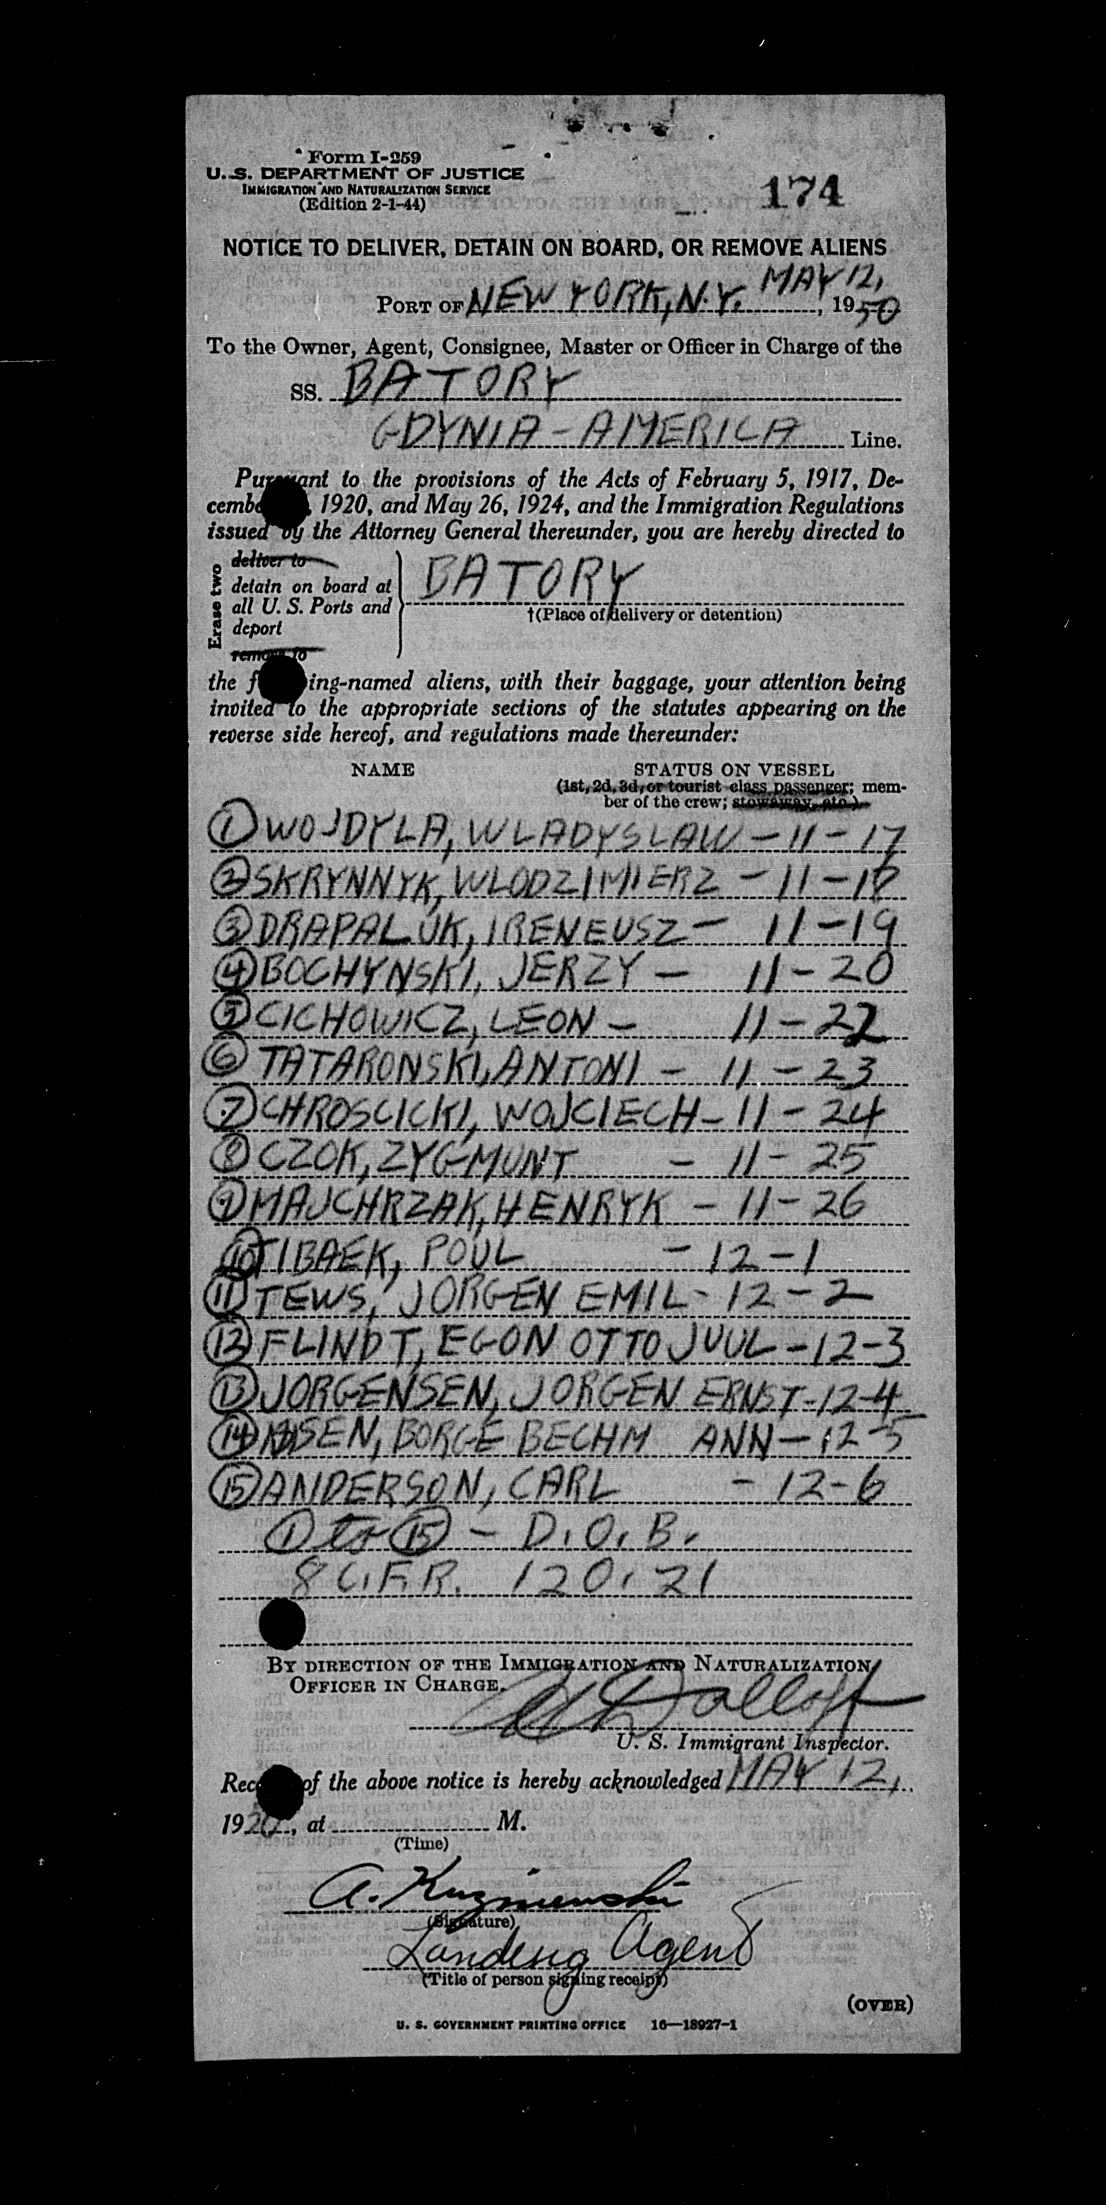 Form I-259
U. S. DEPARTMENT OF JUSTICE
IMMIGRATION AND NATURALIZATION SERVICE
(Edition 2-1-44)
174
NOTICE TO DELIVER, DETAIN ON BOARD, OR REMOVE ALIENS
PORT OF NEW YORK, N.Y. MAY 12, 1950
To the Owner, Agent, Consignee, Master or Officer in Charge of the
SS. BATORY
GDYNIA-AMERICA Line.
Pursuant to the provisions of the Acts of February 5, 1917, De-
cember , 1920, and May 26, 1924, and the Immigration Regulations
issued by the Attorney General thereunder, you are hereby directed to
Erase two
deliver to
detain on board at
all U. S. Ports and
deport
remove to
BATORY
†(Place of delivery or detention)
the f ing-named aliens, with their baggage, your attention being
invited to the appropriate sections of the statutes appearing on the
reverse side hereof, and regulations made thereunder:
NAME STATUS ON VESSEL
(1st, 2d, 3d, or tourist class passenger; mem-
ber of the crew; stowaway, etc.)
1 WOJDYLA, WLADYSLAW - 11 - 17
2 SKRYNNYK, WLODZIMIERZ - 11 - 18
3 DRAPALUK, IRENEUSZ - 11 - 19
4 BOCHYNSKI, JERZY - 11 - 20
5 CICHOWICZ, LEON - 11 - 22
6 TATARONSKI, ANTONI - 11 - 23
7 CHROSCICKI, WOJCIECH - 11 - 24
8 CZOK, ZYGMUNT - 11 - 25
9 MAJCHRZAK, HENRYK - 11 - 26
10 TIBAEK, POUL - 12 - 1
11 TEWS, JORGEN EMIL - 12 - 2
12 FLINDT, EGON OTTO JUUL - 12 - 3
13 JORGENSEN, JORGEN ERNST - 12 - 4
14 BORGE BECHM ANN - 12 - 5
15 ANDERSON, CARL - 12 - 6
1 to 15 - D.O.B.
8 C.F.R. 120.21
BY DIRECTION OF THE IMMIGRATION AND NATURALIZATION
OFFICER IN CHARGE.
U. S. Immigrant Inspector.
Rec of the above notice is hereby acknowledged MAY 12,
19 , at M.
(Time)
A. Kuzmienski
(Signature)
Landing Agent
(Title of person signing receipt)
(OVER)
U. S. GOVERNMENT PRINTING OFFICE 16—18927-1